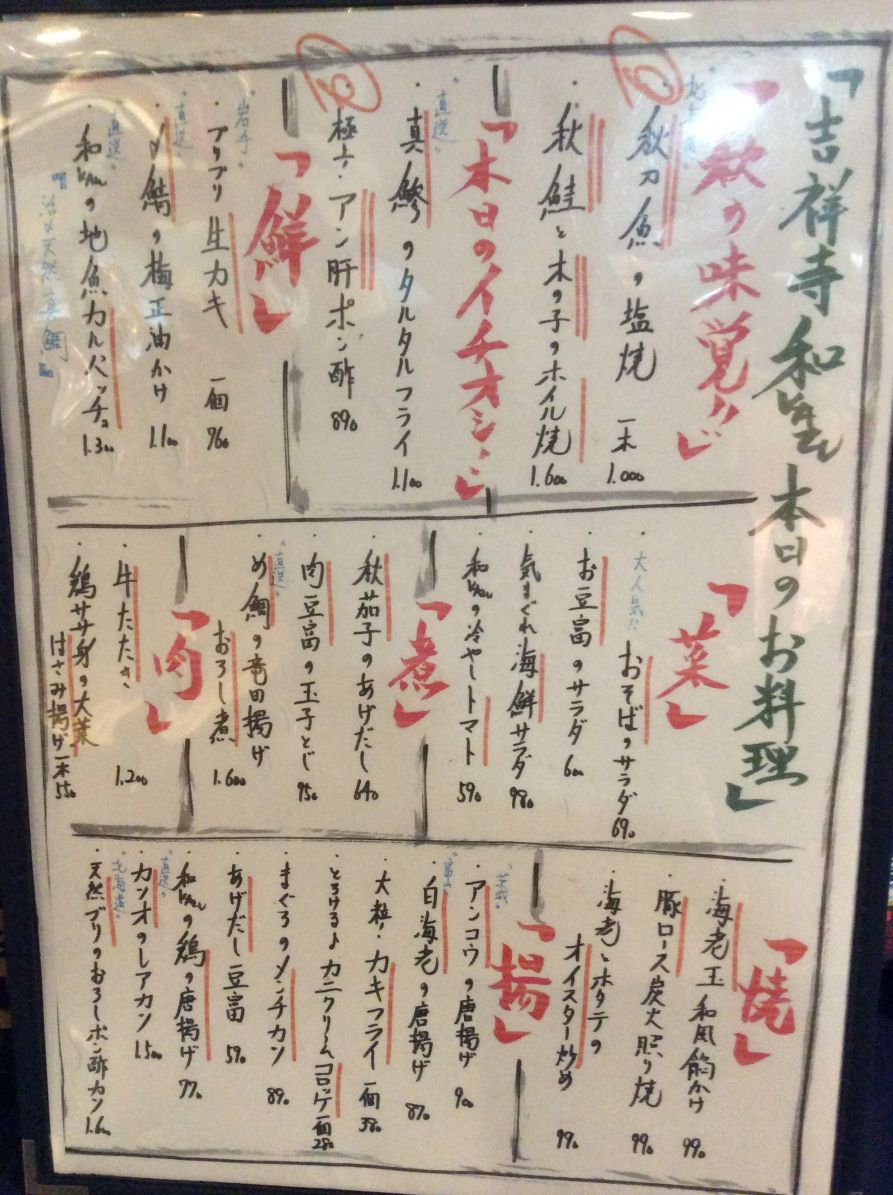 「吉祥寺 和とん 本日のお料理」
「秋の味覚!!」
秋刀魚の塩焼 一本 1.000
秋鮭と木の子のホイル焼 1.600
「本日のイチオシ!!」
"直送"
真鰺のタルタルフライ 1.100
極上!アン肝ポン酢 890
「鮮」
"岩手"
プリプリ生カキ 一個 960
"直送"
〆鯖の梅正油かけ 1.100
"直送"
和とんの地魚カルパッチョ 1.300
「菜」
大人気!!
おそばのサラダ 690
お豆富のサラダ 600
気まぐれ海鮮サラダ 980
和とんの冷やしトマト 590
「煮」
秋茄子のあげだし 640
肉豆富の玉子とじ 950
"直送"
め鯛の竜田揚げ
おろし煮 1.600
「肉」
牛たたき 1.200
鶏ササ身の大葉
はさみ揚げ 一本 550
「焼」
海老玉 和風餡かけ 990
豚ロース炭火照り焼 990
海老とホタテの
オイスター炒め 990
「揚」
アンコウの唐揚げ 900
白海老の唐揚げ 870
大粒!カキフライ 一個 380
とろける♪カニクリームコロッケ 一個 280
まぐろのメンチカツ 890
あげだし豆富 590
和とんの鶏の唐揚げ 770
"直送"
カツオのレアカツ 1.500
"北海道"
天然ブリのおろしポン酢カツ 1.600